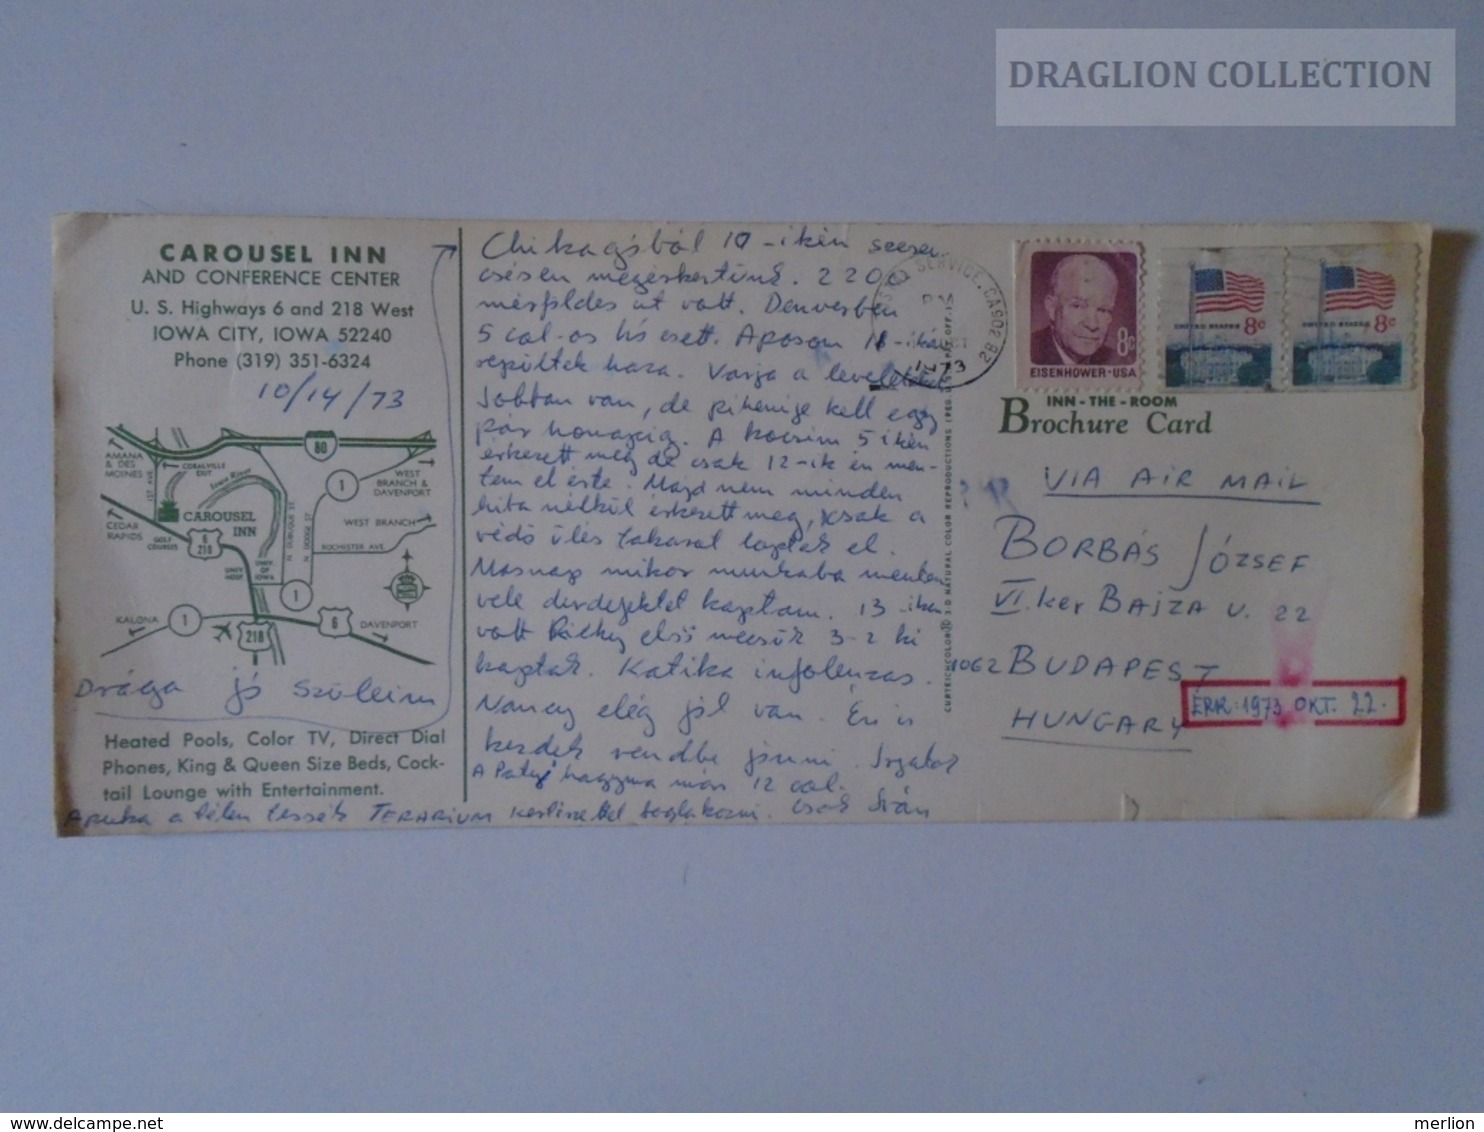 DRAGLION COLLECTION
CAROUSEL INN
AND CONFERENCE CENTER
U. S. Highways 6 and 218 West
IOWA CITY, IOWA 52240
Phone (319) 351-6324
10/14/73
80
AMANA & DES MOINES
1ST AVE
CORALVILLE EXIT
Iowa River
1
WEST BRANCH & DAVENPORT
CEDAR RAPIDS
CAROUSEL INN
GOLF COURSES
6 218
N. DUBUQUE ST
N. DODGE ST
WEST BRANCH
ROCHESTER AVE.
UNIV. HOSP
UNIV. OF IOWA
1
KALONA
1
218
6
DAVENPORT
Drága jó Szüleim
Heated Pools, Color TV, Direct Dial
Phones, King & Queen Size Beds, Cock-
tail Lounge with Entertainment.
Apuka a télen tessék TERARIUM foglakozni. Csak Iván
Chikagóból 10-ikén szeren
csésen megérkeztünk. 220
mérföldes út volt. Denverben
5 col-os hó esett. Aposom 11-ikén
repültek haza. Varja a leveleket
Jobban van, de pihenije kell egy
pár honapig. A kocsim 5 ikén
érkezett meg de csak 12-ik én men-
tem el érte. Majd nem minden
hiba nélkül érkezett meg, csak a
védő ülés takarot loptak el.
Masnap mikor munkaba mentem
vele kaptam. 13-ikán
volt első meccsük 3-2 ki
kaptak. Katika infolenzas.
Nancy elég jól van. Én is
kezdek rendbe jönni.
A hagyma már 12 col.
CURTEICHCOLOR® 3-D NATURAL COLOR REPRODUCTIONS
SERVICE, CA 902
PM
1973
2B
EISENHOWER·USA
8c
UNITED STATES 8c
UNITED STATES 8c
INN - THE - ROOM
Brochure Card
VIA AIR MAIL
BORBÁS JÓZSEF
VI. ker BAJZA U. 22
1062 BUDAPEST
HUNGARY
ÉRK: 1973 OKT. 22.
merlion